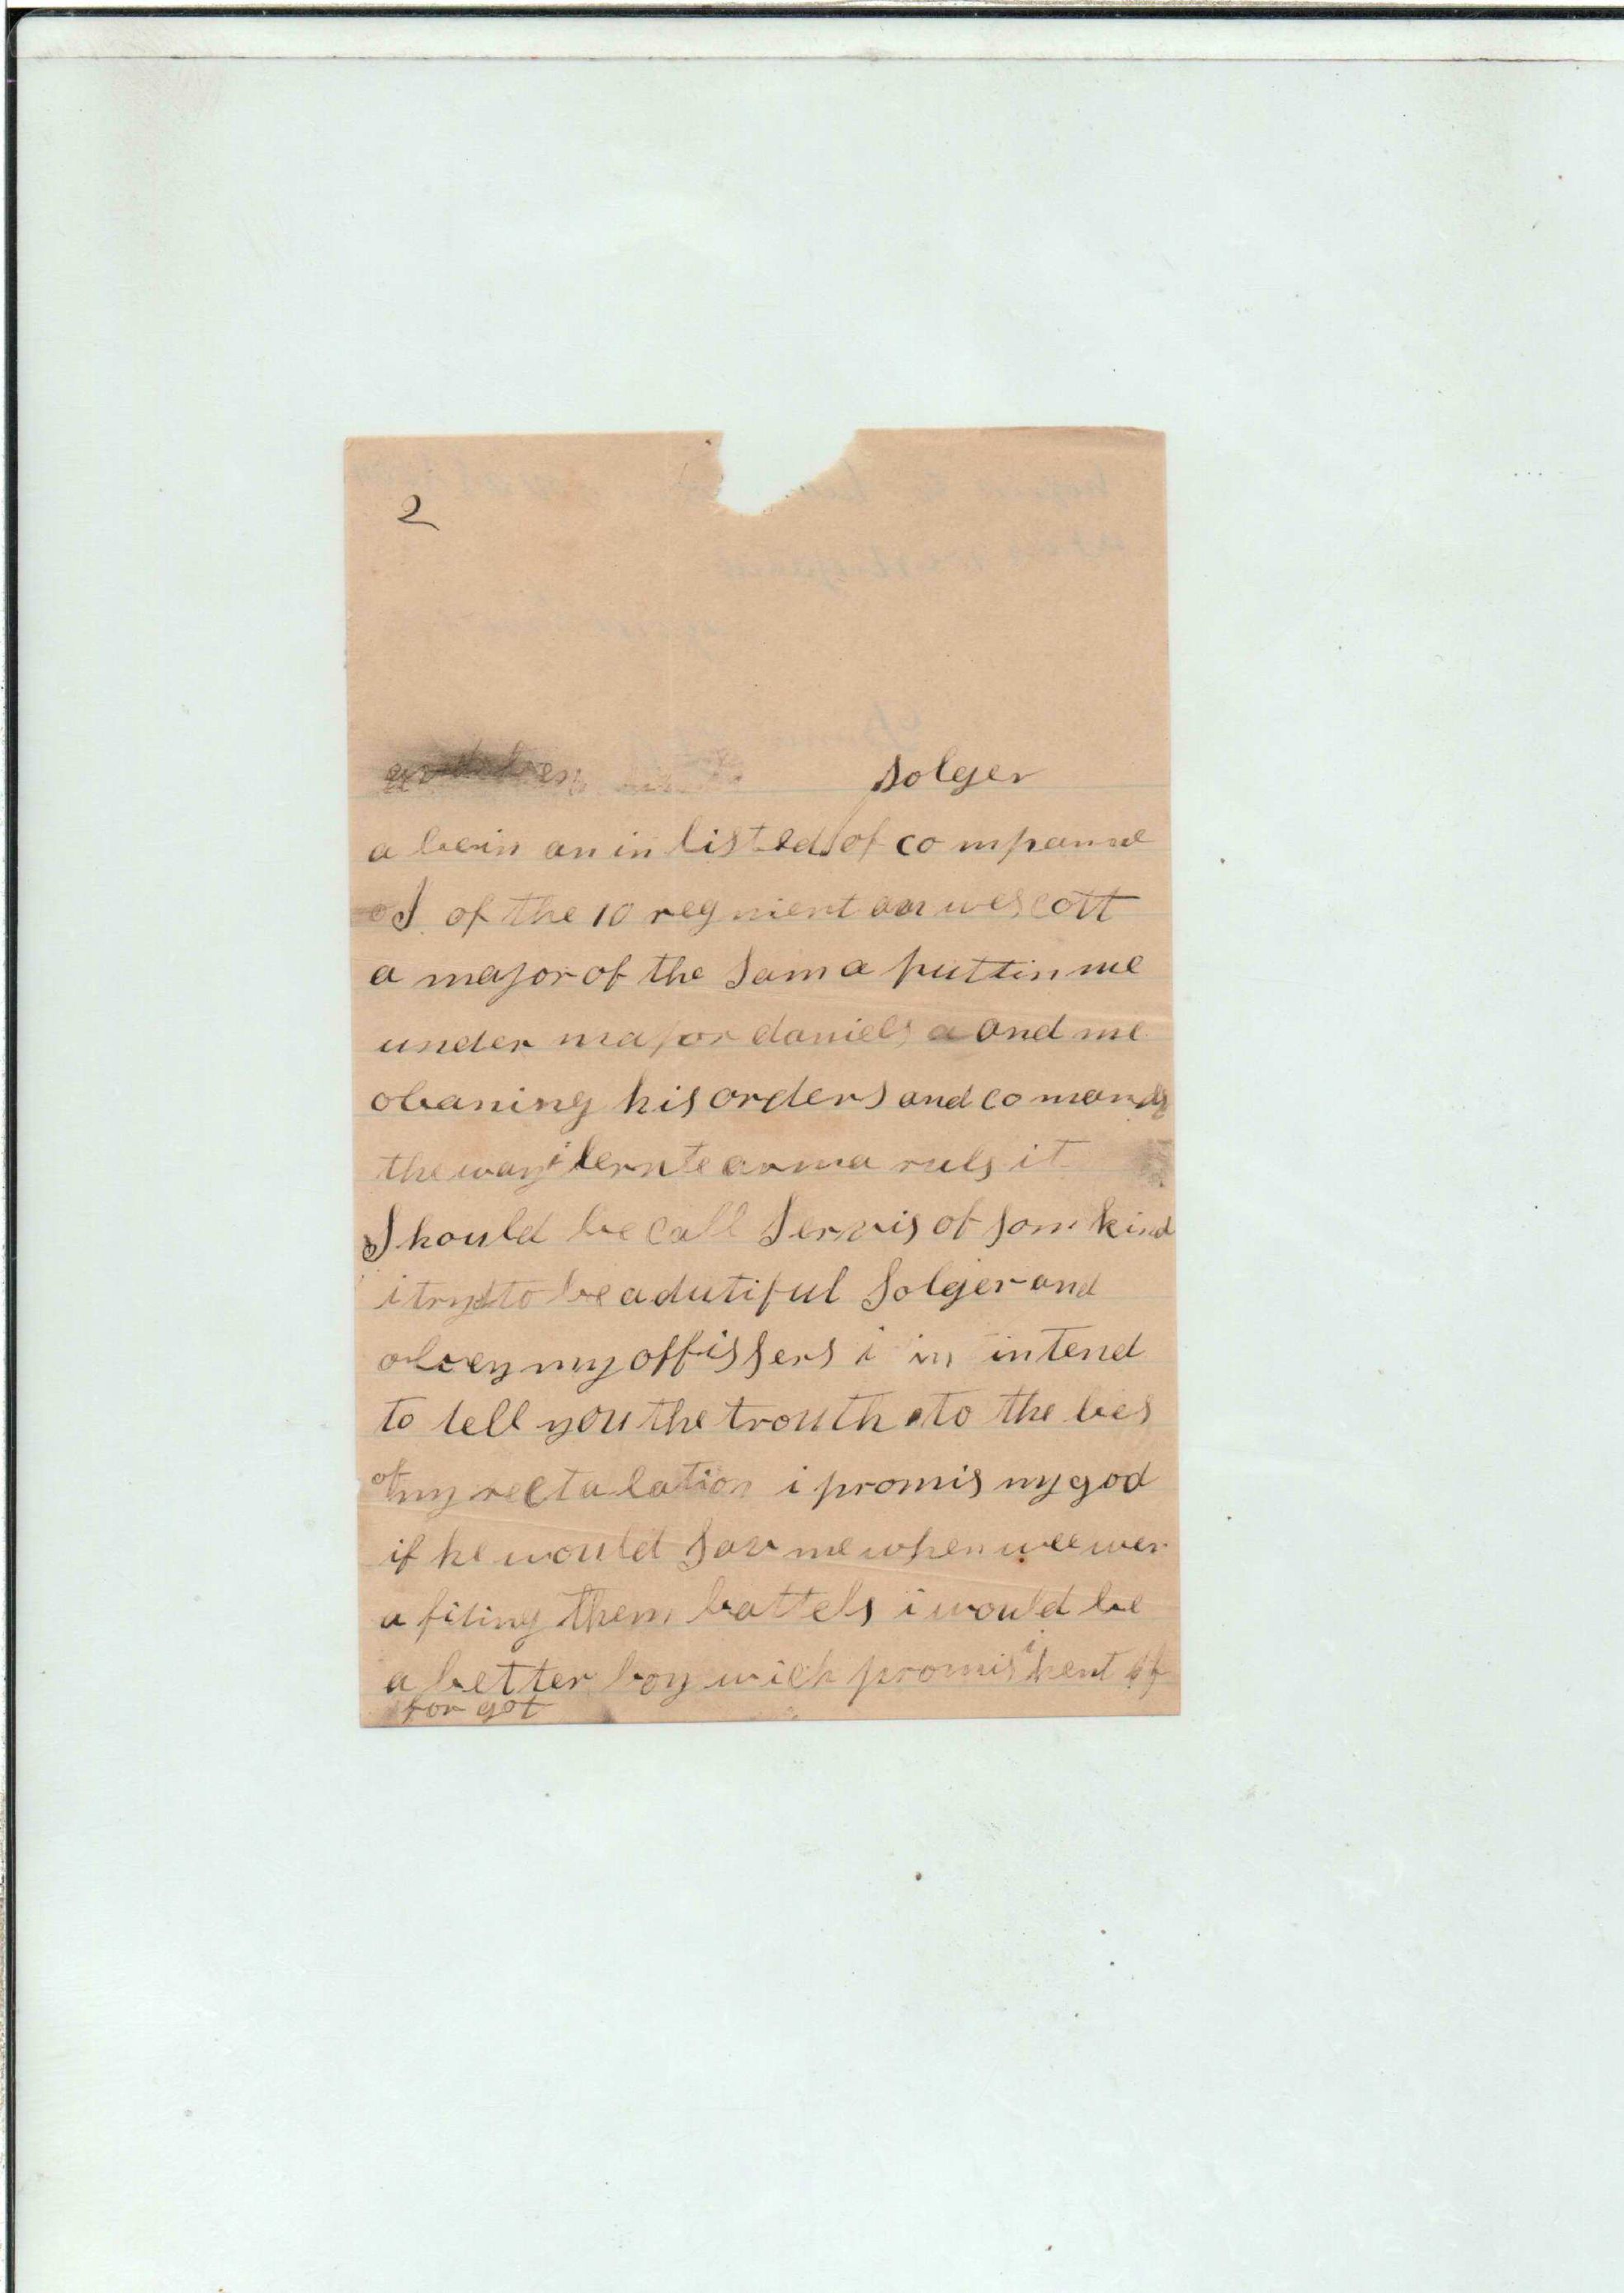 2
solger
a bein an in listed of companie
I of the 10 regnient wescott
a major of the sam a puttin me
under major daniels a and me
obaning his orders and comands
the way i lern te arma ruls it
Should be call Servis of som kind
i tryd to be a dutiful Solger and
obey my offissers i in intend
to tell you the trouth to the bes
of my rectalation i promis my god
if he would Sav me when wee wer
a fiting them battels i would be
a better boy wich promis i hent
for got